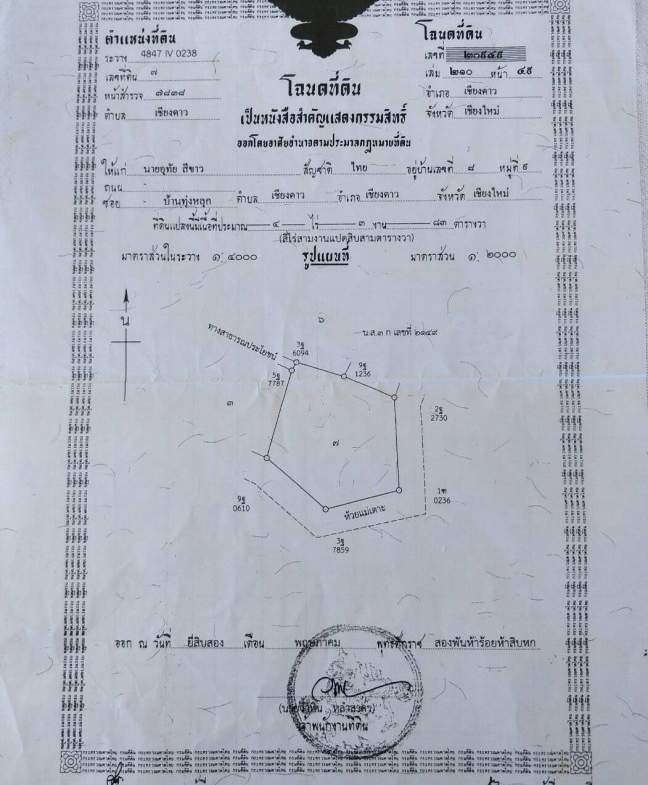 ตำแหน่งที่ดิน
ระวาง 4847 IV 0238
เลขที่ดิน ๗
หน้าสำรวจ ๗๘๓๘
ตำบล เชียงดาว
โฉนดที่ดิน
เลขที่ ๒๐๙๔๙
เล่ม ๒๑๐ หน้า ๔๙
อำเภอ เชียงดาว
จังหวัด เชียงใหม่
โฉนดที่ดิน
เป็นหนังสือสำคัญแสดงกรรมสิทธิ์
ออกโดยอาศัยอำนาจตามประมวลกฎหมายที่ดิน
ให้แก่ นายอุทัย สีขาว สัญชาติ ไทย อยู่บ้านเลขที่ ๘ หมู่ที่ ๙
ถนน -
ซอย - บ้านทุ่งหลุก ตำบล เชียงดาว อำเภอ เชียงดาว จังหวัด เชียงใหม่
ที่ดินแปลงนี้มีเนื้อที่ประมาณ ๔ ไร่ ๓ งาน ๘๓ ตารางวา
(สี่ไร่สามงานแปดสิบสามตารางวา)
มาตราส่วนในระวาง ๑: ๔๐๐๐ รูปแผนที่ มาตราส่วน ๑: ๒๐๐๐
น
๖
น.ส.๓ ก เลขที่ ๒๑๔๙
ทางสาธารณประโยชน์
3ฐ
6094
5ฐ
7787
9ฐ
1236
๓
2ฐ
2730
๗
9ฐ
0610
0236
ห้วยแม่เตาะ
3ฐ
7859
ออก ณ วันที่ ยี่สิบสอง เดือน พฤษภาคม พุทธศักราช สองพันห้าร้อยห้าสิบหก
เจ้าพนักงานที่ดิน